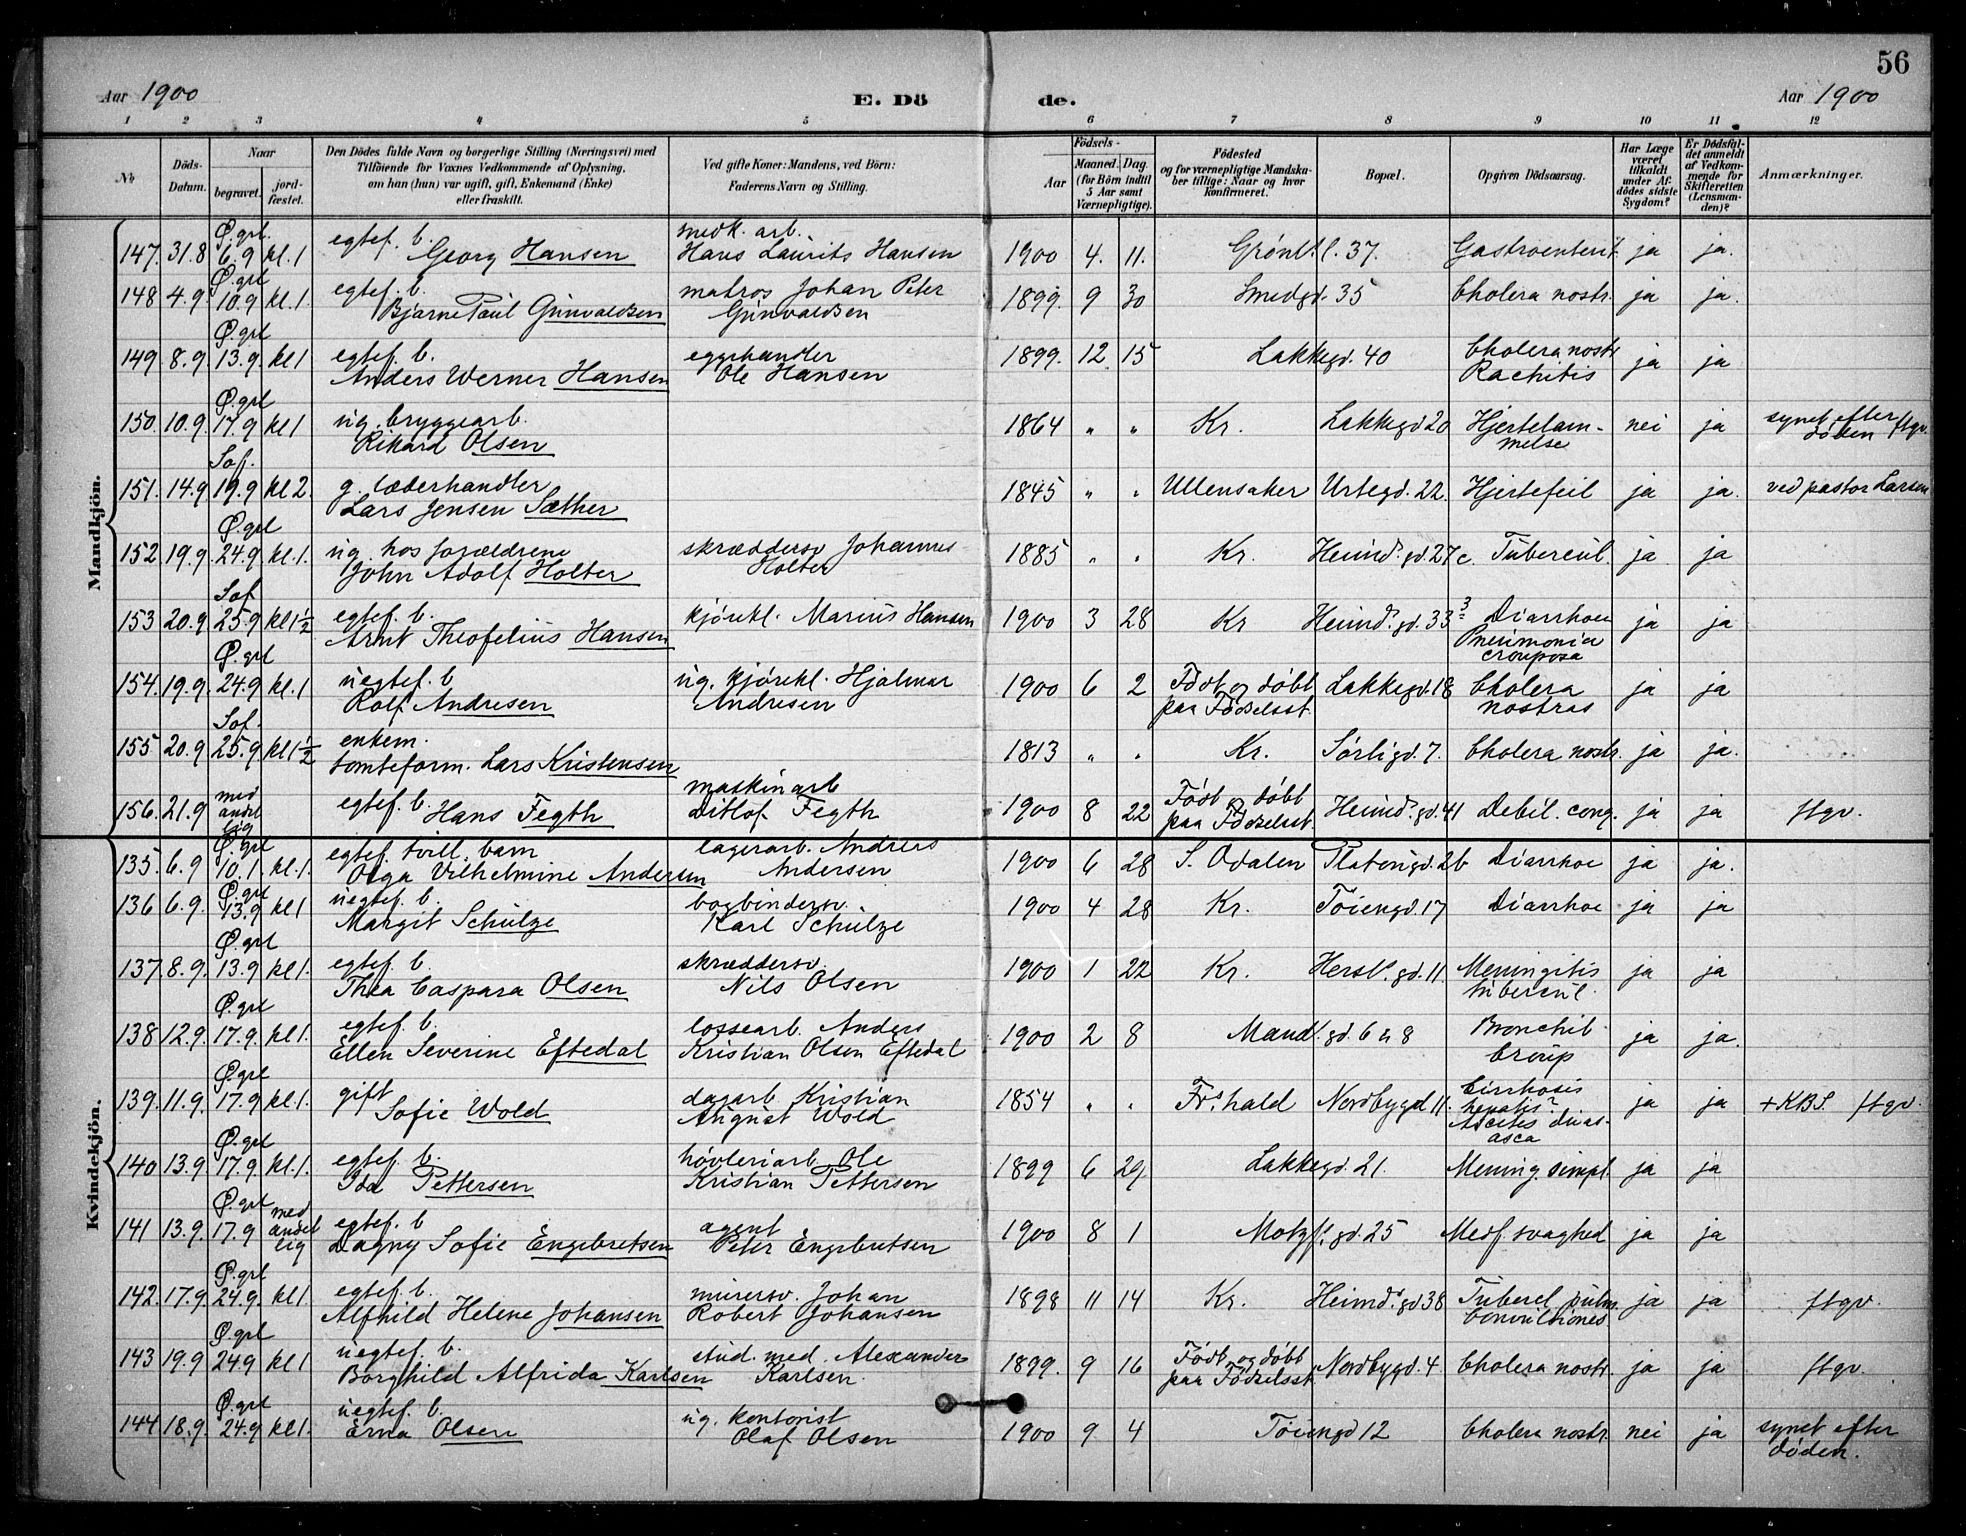 56
Aar 1900 E. Dö de. Aar 1900
1 2 3 4 5 6 7 8 9 10 11 12
No
Döds-Datum.
Naar
begravet.
jord-fæstet.
Den Dödes fulde Navn og borgerlige Stilling (Næringsvei) med
Tilföiende for Voxnes Vedkommende af Oplysning,
om han (hun) var ugift, gift, Enkemand (Enke)
eller fraskilt.
Ved gifte Koner: Mandens, ved Börn:
Faderens Navn og Stilling.
Födsels-
Aar
Maaned.
Dag.
(for Börn indtil
5 Aar samt
Værnepligtige).
Födested
og for værnepligtige Mandska-
ber tillige: Naar og hvor
konfirmeret.
Bopæl.
Opgiven Dödsaarsag.
Har Læge
været
tilkaldt
under Af-
dödes sidste
Sygdom?
Er Dödsfal-
det anmeldt
af Vedkom-
mende for
Skifteretten
(Lensman-
den)?
Anmærkninger.
Mandkjön.
Ø.grl. egtef. b. smedk. arb.
147. 31.8 6.9 kl.1 Georg Hansen Hans Laurits Hansen 1900 4. 11. Grønl.l. 37. Gastroenterit. ja ja.
Ø.grl egtef. b. matros Johan Peter
148 4.9. 10.9 kl.1. Bjarne Paul Grinvaldsen Grinvaldsen 1899. 9 30 Smedgd. 35 Cholera nostr. ja ja.
Ø.grl egtef. b. eggehandler Cholera nostr
149. 8.9. 13.9. kl1 Anders Werner Hansen Ole Hansen 1899. 12 15 Lakkegd. 40 Rachitis ja ja
Ø.grl ug. bryggearb. synet efter
150. 10.9. 17.9 kl1 Rikard Olsen 1864 " " Kr. Lakkegd 20 Hjertelam- nei ja døden ftgv.
melse
Sof. g. læderhandler
151. 14.9 19.9 kl2. Lars Jensen Sæther 1845 " " Ullensaker Urtegd. 22. Hjertefeil ja ja. ved pastor Larsen
Ø.grl ug. hos forældrene skræddersv Johannes
152. 19.9. 24.9 kl.1. John Adolf Holter Holter 1885 " " Kr. Heimd.s gd. 27 c. Tubercul. ja ja
Sof egtef. b. kjørekl. Marius Hansen
153 20.9 25.9 kl1½ Arnt Theofelius Hansen 1900 3 28 Kr Heimd.s gd. 33 Diarrhoe ja ja
Pneumonia
crouposa
Ø.grl uegtef. b ug. kjørekl. Hjalmar Født og døbt
154. 19.9. 24.9 kl.1 Rolf Andresen Andresen 1900 6 2 paa Fødselsst. Lakkegd. 18 Cholera ja ja
nostras
Sof. enkem.
155 20.9 25.9 kl1½ tomteform. Lars Kristensen 1813 " " Kr. Sørligd. 7. Cholera nostr. ja ja.
med andet lig egtef. b. maskinarb Født og døbt
156. 21.9 Hans Fegth Ditlof Fegth 1900 8 22 paa Fødselsst. Heimd.s gd. 41 Debil. cong. ja ja ftgv.
Kvindekjön.
Ø.grl egtef. tvill. barn lagerarb. Andreas
135. 6.9 10.1. kl.1. Olga Vilhelmine Andersen Andersen 1900 6 28 S. Odalen Platougd. 2b Diarrhoe ja ja.
Ø.grl uegtef. b. bogbindersv.
136 6.9. 13.9 kl1 Margit Schulze Karl Schulze 1900 4 28 Kr. Tøiengd. 17 Diarrhoe ja ja
Ø.grl egtef. b. skræddersv.
137. 8.9. 13.9 kl1. Thea Caspara Olsen Nils Olsen 1900 1 22 Kr. Hersl. gd. 11. Meningitis ja ja
tubercul.
Ø.grl egtef. b. lossearb. Anders
138 12.9. 17.9. kl1. Ellen Severine Eftedal Kristian Olsen Eftedal 1900 2 8 Mandl. gd. 6 & 8 Bronchit. ja ja.
Croup
Ø.grl gift dagarb Kristian Cirrhosis
139. 11.9. 17.9 kl.1. Sofie Wold August Wold 1854 " " Fr.s hald Nordbygd 11. hepatis? ja ja + KBS. ftgv.
Ascites
Ø.grl egtef. b. høvleriarb. Ole
140. 13.9. 17.9. kl.1. Ida Pettersen Kristian Pettersen 1899 6 29 Lakkegd. 21. Mening. simpl. ja ja
Ø.grl med andet lig egtef. b agent
141 13.9. 17.9 Dagny Sofie Engebretsen Peter Engebretsen 1900 8 1 Motzf. gd. 25 Medf. svaghed ja ja
Ø.grl egtef. b. murersv. Johan
142. 17.9. 24.9. kl1 Alfhild Helene Johansen Robert Johansen 1898 11 14 Kr. Heimd.s gd 38 Tubercl pulm. ja ja ftgv.
Convultiones
Ø.grl uegtef. b. stud. med. Alexander Født og døbt
143 19.9 24.9 kl1 Borghild Alfrida Karlsen Karlsen. 1899. 9 16 paa Fødselsst. Nordbygd. 4 Cholera nostr. ja ja ftgv.
Ø.grl uegtef. b. ug. kontorist
144 18.9. 24.9 kl1. Erna Olsen Olaf Olsen 1900 9 4 Tøiengd 12 Cholera nostr. nei ja synet efter
døden.